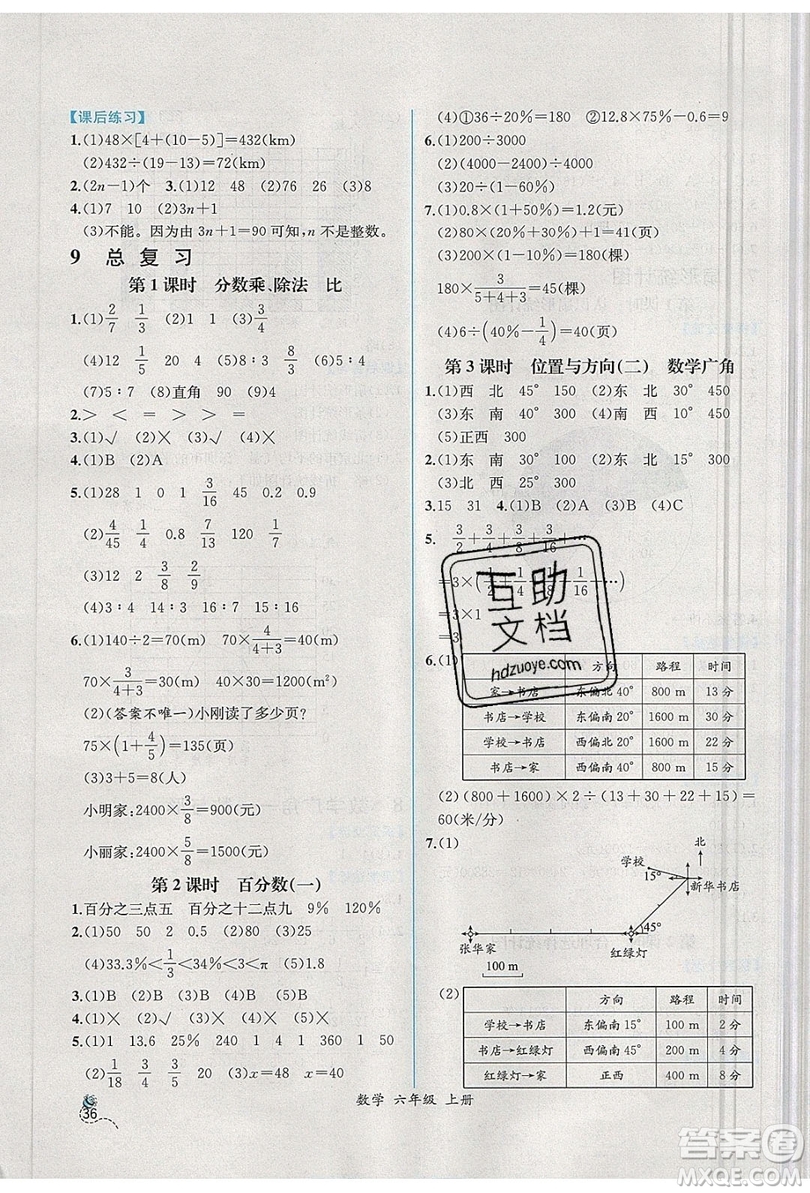 【课后练习】
1.(1)48×[4+(10-5)]=432(km)
(2)432÷(19-13)=72(km)
2.(2n-1)个 3.(1)12 48 (2)76 26 (3)8
4.(1)7 10 (2)3n+1
(3)不能。因为由3n+1=90可知,n不是整数。
9 总复习
第1课时 分数乘、除法 比
1.(1)2/7 1/3 (2)1 1 (3)3/4
(4)12 1/5 20 4 (5)1/3 (6)8/15
(7)5∶7 (8)直角 90 (9)4
2.> < = > = <
3.(1)√ (2)× (3)√ (4)×
4.(1)B (2)A
5.(1)28 1 0 1 3/16 2/15 9 1/2
(2)4/45 1/44 0.8 7/13 120 1/8
(3)12 2 3/8 2/9
(4)8∶9 4∶3 16∶1 16∶15
6.(1)140÷2=70(m) 70×4/(4+3)=40(m)
70×3/(4+3)=30(m) 40×30=1200(m²)
(2)(答案不唯一)小刚读了多少页?
75×(1+4/5)=135(页)
(3)3+5=8(人)
小明家:2400×3/8=900(元)
小丽家:2400×5/8=1500(元)
第2课时 百分数(一)
1.百分之三点五 百分之十二点九 9% 120%
2.(1)50 50 2 0.5 (2)80 (3)25
(4)33.3%<1/3<34%<3<π (5)1.8
3.(1)B (2)B (3)A (4)B
4.(1)× (2)√ (3)× (4)× (5)×
5.(1)1 13.6 25% 240 1.35 1 50
(2)1/18 4/5 (3)x=40 x=48
(4)①36÷20%=180 ②12.8×75%-0.6=9
6.(1)200÷3000
(2)(4000-2400)÷(4000)
(3)20÷(1-60%)
7.(1)0.8×(1+50%)=1.2(元)
(2)80×(20%+30%)+1=41(页)
(3)200×(1-10%)=180(棵)
180×3/(5+4+3)=45(棵)
(4)6÷(40%-1/4)=40(页)
第3课时 位置与方向(二) 数学广角
1.(1)西 北 45° 150 (2)东 北 30° 450
(3)东 南 40° 300 (4)南 西 10° 450
(5)正西 300
2.(1)东 南 30° 250 (2)南 西 15° 200
(3)北 西 25° 300
3.15 31 4.(1)B (2)A (3)B (4)C
5. 3/2+3/4+3/8+3/16+…
=3×(1/2+1/4+1/8+1/16+…)
=3×1
=3
互助文档
hdzuoye.com
6.(1) 方向 路程 时间
家→书店 东偏北40° 800 m 13分
书店→学校 东偏南20° 1600 m 30分
学校→书店 西偏北20° 1600 m 22分
书店→家 西偏南40° 800 m 15分
(2)(800+1600)×2÷(13+30+22+15)=
60(米/分)
7.(1)
北
学校
15°
新华书店
45°
张华家
红绿灯
100 m
(2) 方向 路程 时间
学校→书店 东偏南15° 100 m 2分
书店→红绿灯 西偏南45° 200 m 4分
红绿灯→家 正西 400 m 8分
36
数学 六年级 上册
答案圈
MXQE.COM